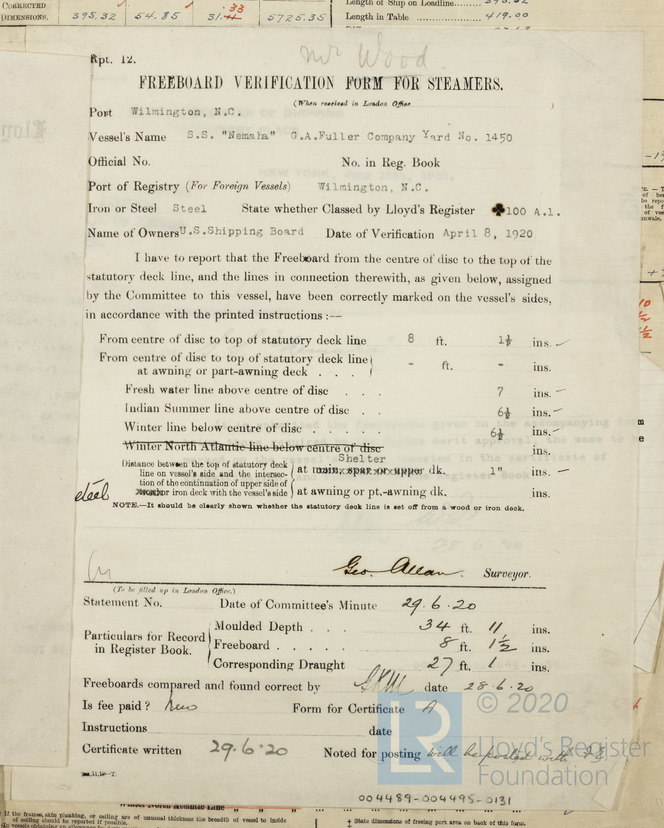 CORRECTED
DIMENSIONS.
395.32 54.85 31.11 .33 5725.35
Length of Ship on Loadline
Length in Table 419.00
Rpt. 12.
Mr Wood.
FREEBOARD VERIFICATION FORM FOR STEAMERS.
(When received in London Office )
Port Wilmington, N.C.
Vessel's Name S.S. "Nemaha" G.A.Fuller Company Yard No. 1450
Official No. No. in Reg. Book
Port of Registry (For Foreign Vessels) Wilmington, N.C.
Iron or Steel Steel State whether Classed by Lloyd's Register ✤100 A.1.
Name of Owners U.S.Shipping Board Date of Verification April 8, 1920
I have to report that the Freeboard from the centre of disc to the top of the
statutory deck line, and the lines in connection therewith, as given below, assigned
by the Committee to this vessel, have been correctly marked on the vessel's sides,
in accordance with the printed instructions :—
From centre of disc to top of statutory deck line 8 ft. 1½ ins.
From centre of disc to top of statutory deck line
at awning or part-awning deck . . . - ft. - ins.
Fresh water line above centre of disc . . . 7 ins.
Indian Summer line above centre of disc . . 6½ ins.
Winter line below centre of disc . . . . . 6½ ins.
Winter North Atlantic line below centre of disc ins.
Shelter
Distance between the top of statutory deck
line on vessel's side and the intersec- at main, spar or upper dk. 1" ins.
tion of the continuation of upper side of
steel or iron deck with the vessel's side at awning or pt.-awning dk. ins.
NOTE.—It should be clearly shown whether the statutory deck line is set off from a wood or iron deck.
Geo. Allan. Surveyor.
(To be filled up in London Office.)
Statement No. Date of Committee's Minute 29.6.20
Particulars for Record
in Register Book.
Moulded Depth . . . 34 ft. 11 ins.
Freeboard . . . . . 8 ft. 1½ ins.
Corresponding Draught 27 ft. 1 ins.
Freeboards compared and found correct by date 28.6.20
Is fee paid? Form for Certificate A
Instructions date
Certificate written 29.6.20 Noted for posting will be posted with
LR
© 2020
Lloyd's Register
Foundation
004489-004495-0131
Winter North Atlantic Line
If the frames, skin planking, or ceiling are of unusual thickness the breadth of vessel to inside
of ceiling should be reported if possible.
‡ State dimensions of freeing port area on back of this form.